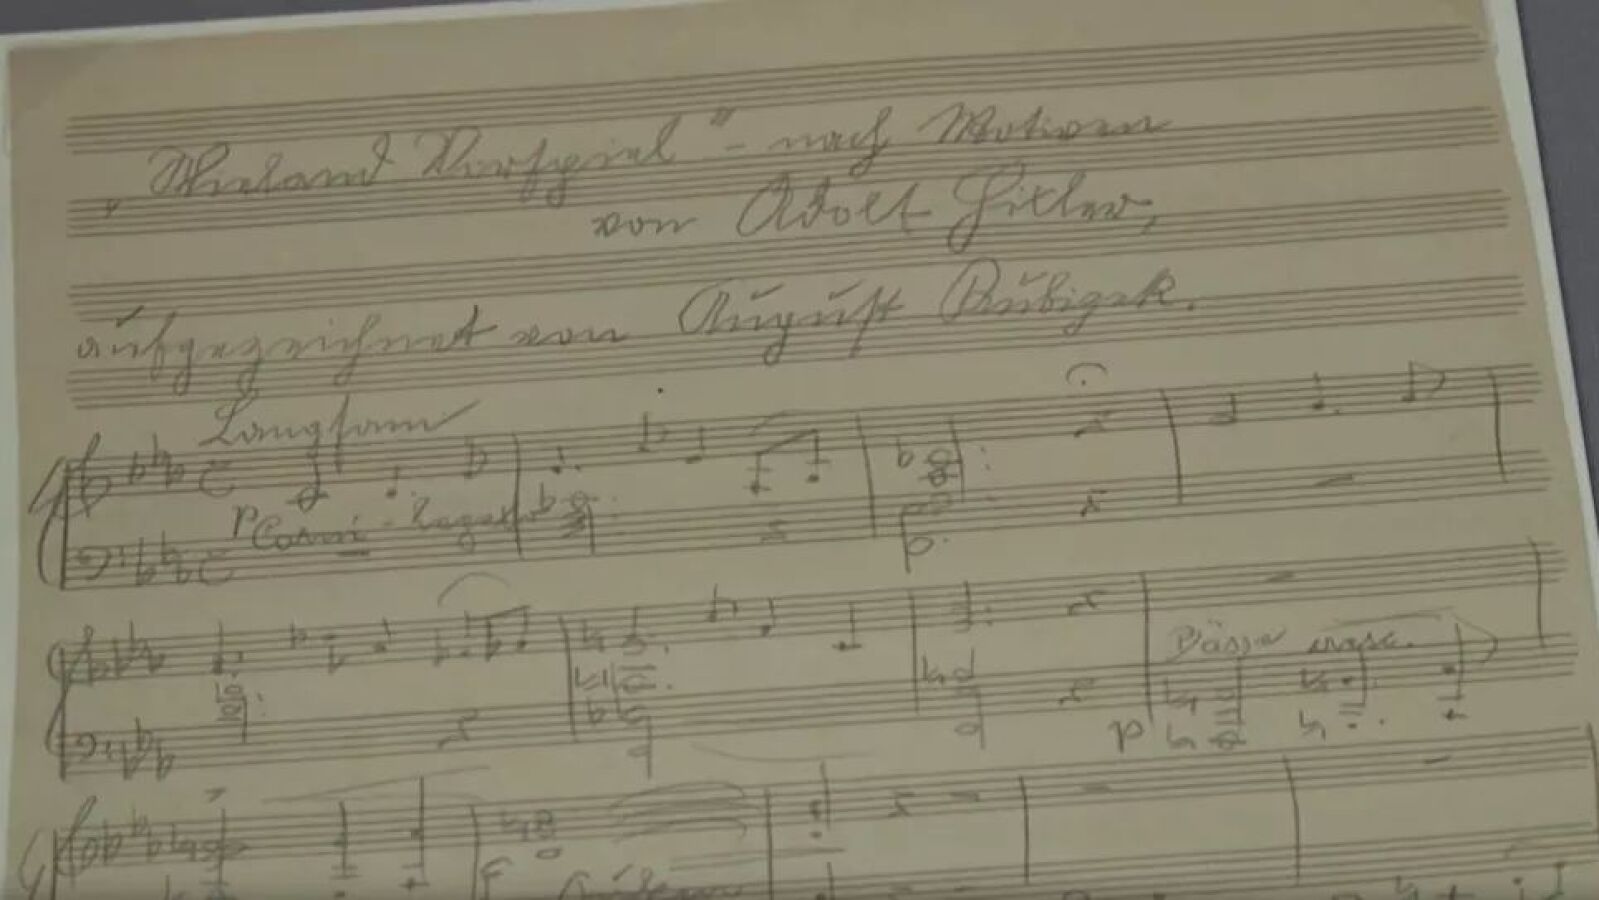 „Wieland Vorspiel“ – nach Motiven
von Adolf Hitler,
aufgezeichnet von August Kubizek.
Langsam
p Corni -
Bässe
p
f